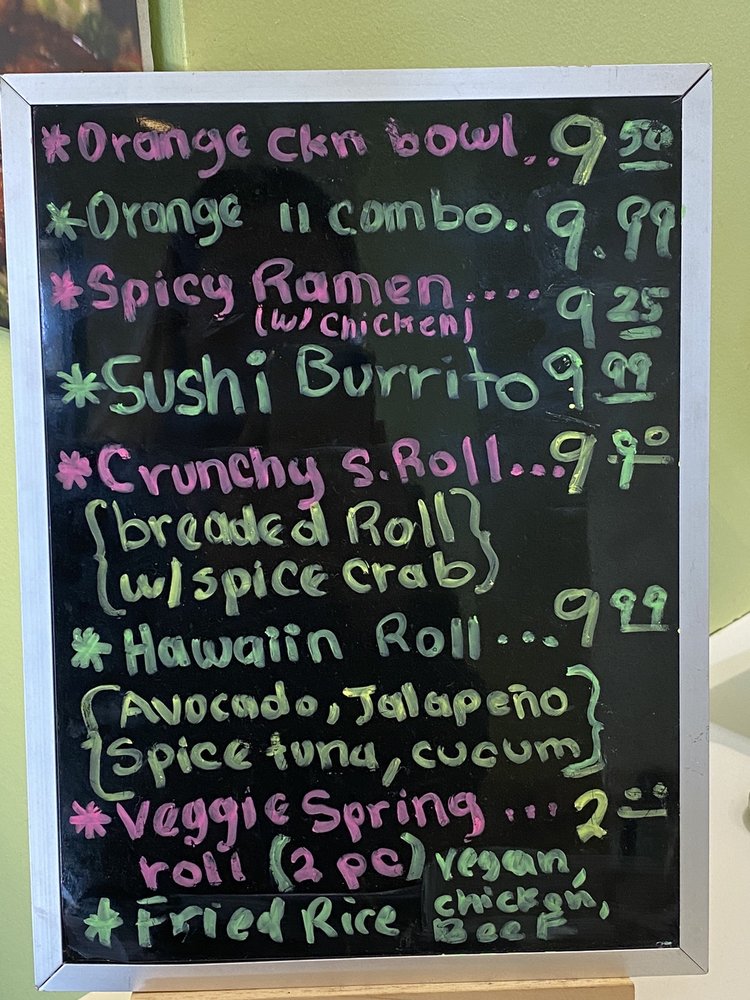 *Orange ckn bowl.. 9 50
*Orange 11 combo.. 9.99
*Spicy Ramen.... 9 25
(w/ chicken)
*Sushi Burrito 9 99
*Crunchy S.Roll... 9 90
{breaded Roll}
{w/ spice crab}
*Hawaiin Roll ... 9 99
{Avocado, Jalapeño}
{Spice tuna, cucum}
*Veggie Spring ... 2
roll (2 pc) vegan,
*Fried Rice chicken,
Beef